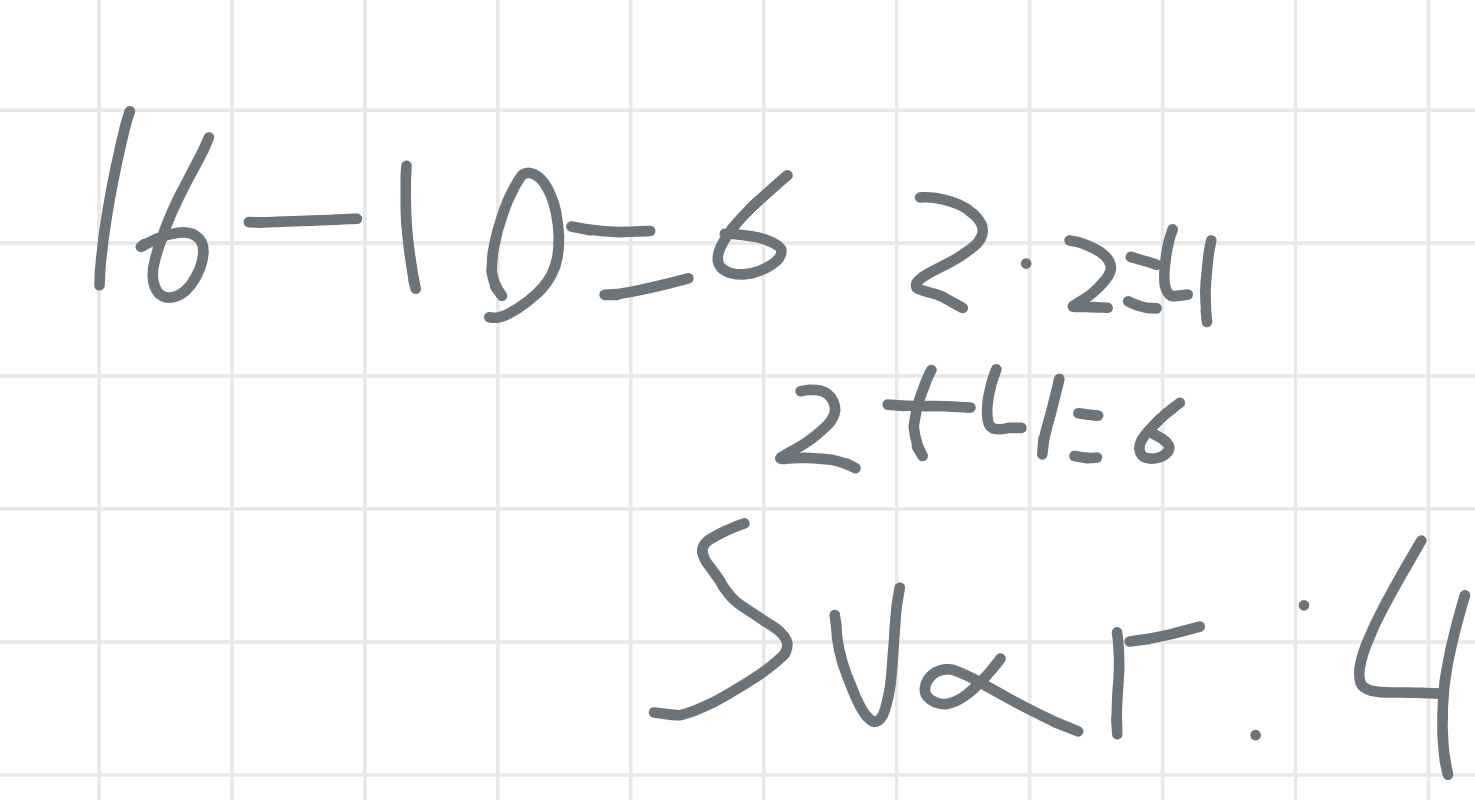 16-10=6 2·2=4
2+4=6
Svar: 4